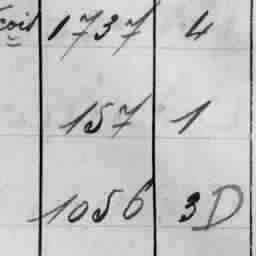 cois 1737 4
157 1
1056 3D